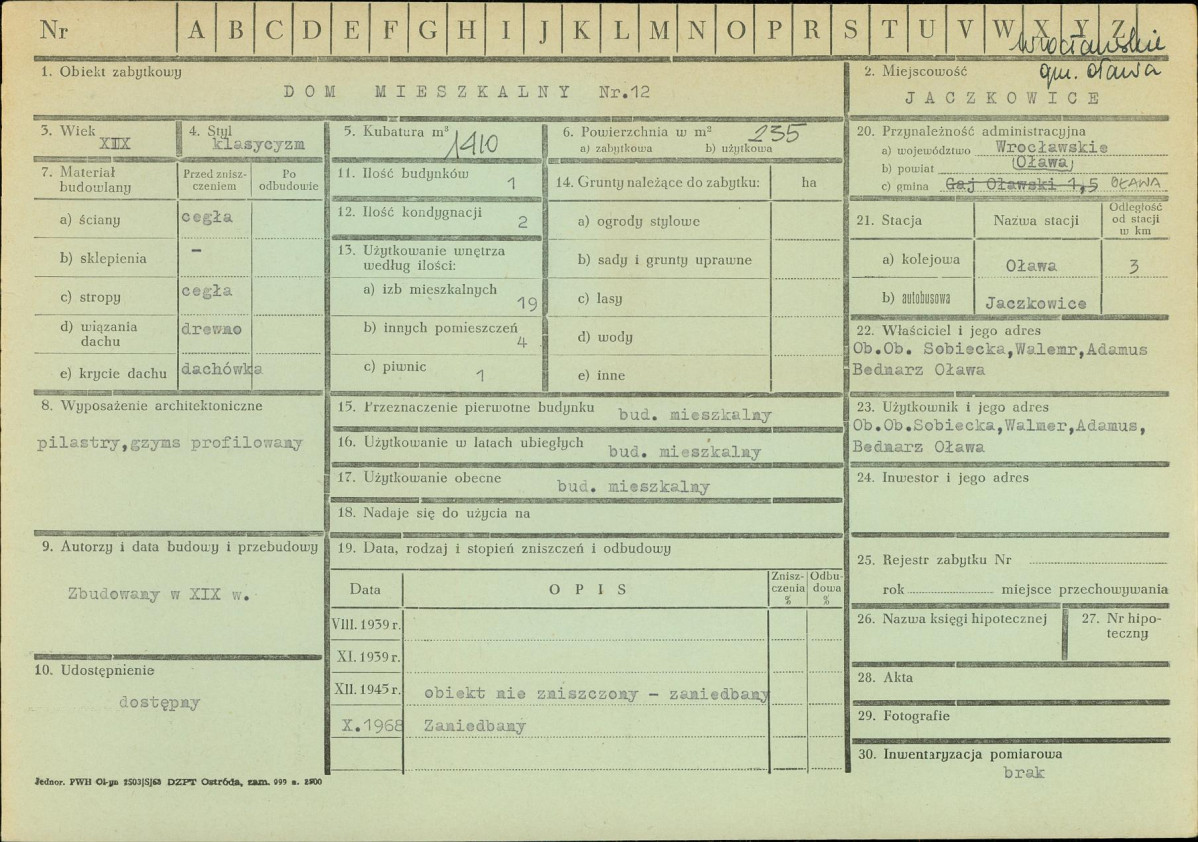 Nr A B C D E F G H I J K L M N O P R S T U V W X Y Z
Wrocławskie
gm. Oława
1. Obiekt zabytkowy
DOM MIESZKALNY Nr.12
2. Miejscowość
JACZKOWICE
3. Wiek
XIX
4. Styl
klasycyzm
5. Kubatura m³
1410
6. Powierzchnia w m²
235
a) zabytkowa b) użytkowa
7. Materiał budowlany
Przed zniszczeniem
Po odbudowie
a) ściany cegła
b) sklepienia –
c) stropy cegła
d) wiązania dachu drewno
e) krycie dachu dachówka
8. Wyposażenie architektoniczne
pilastry,gzyms profilowany
9. Autorzy i data budowy i przebudowy
Zbudowany w XIX w.
10. Udostępnienie
dostępny
11. Ilość budynków 1
12. Ilość kondygnacji 2
13. Użytkowanie wnętrza
według ilości:
a) izb mieszkalnych 19
b) innych pomieszczeń 4
c) piwnic 1
14. Grunty należące do zabytku: ha
a) ogrody stylowe
b) sady i grunty uprawne
c) lasy
d) wody
e) inne
15. Przeznaczenie pierwotne budynku bud. mieszkalny
16. Użytkowanie w latach ubiegłych bud. mieszkalny
17. Użytkowanie obecne bud. mieszkalny
18. Nadaje się do użycia na
19. Data, rodzaj i stopień zniszczeń i odbudowy
Data OPIS Zniszczenia % Odbudowa %
VIII. 1939 r.
XI. 1939 r.
XII. 1945 r. obiekt nie zniszczony – zaniedbany
X.1968 Zaniedbany
20. Przynależność administracyjna
a) województwo Wrocławskie
b) powiat (Oława)
c) gmina Gaj Oławski 1,5 OŁAWA
21. Stacja Nazwa stacji Odległość od stacji w km
a) kolejowa Oława 3
b) autobusowa Jaczkowice
22. Właściciel i jego adres
Ob.Ob. Sobiecka,Walemr,Adamus
Bednarz Oława
23. Użytkownik i jego adres
Ob.Ob.Sobiecka,Walmer,Adamus,
Bednarz Oława
24. Inwestor i jego adres
25. Rejestr zabytku Nr
rok miejsce przechowywania
26. Nazwa księgi hipotecznej
27. Nr hipoteczny
28. Akta
29. Fotografie
30. Inwentaryzacja pomiarowa
brak